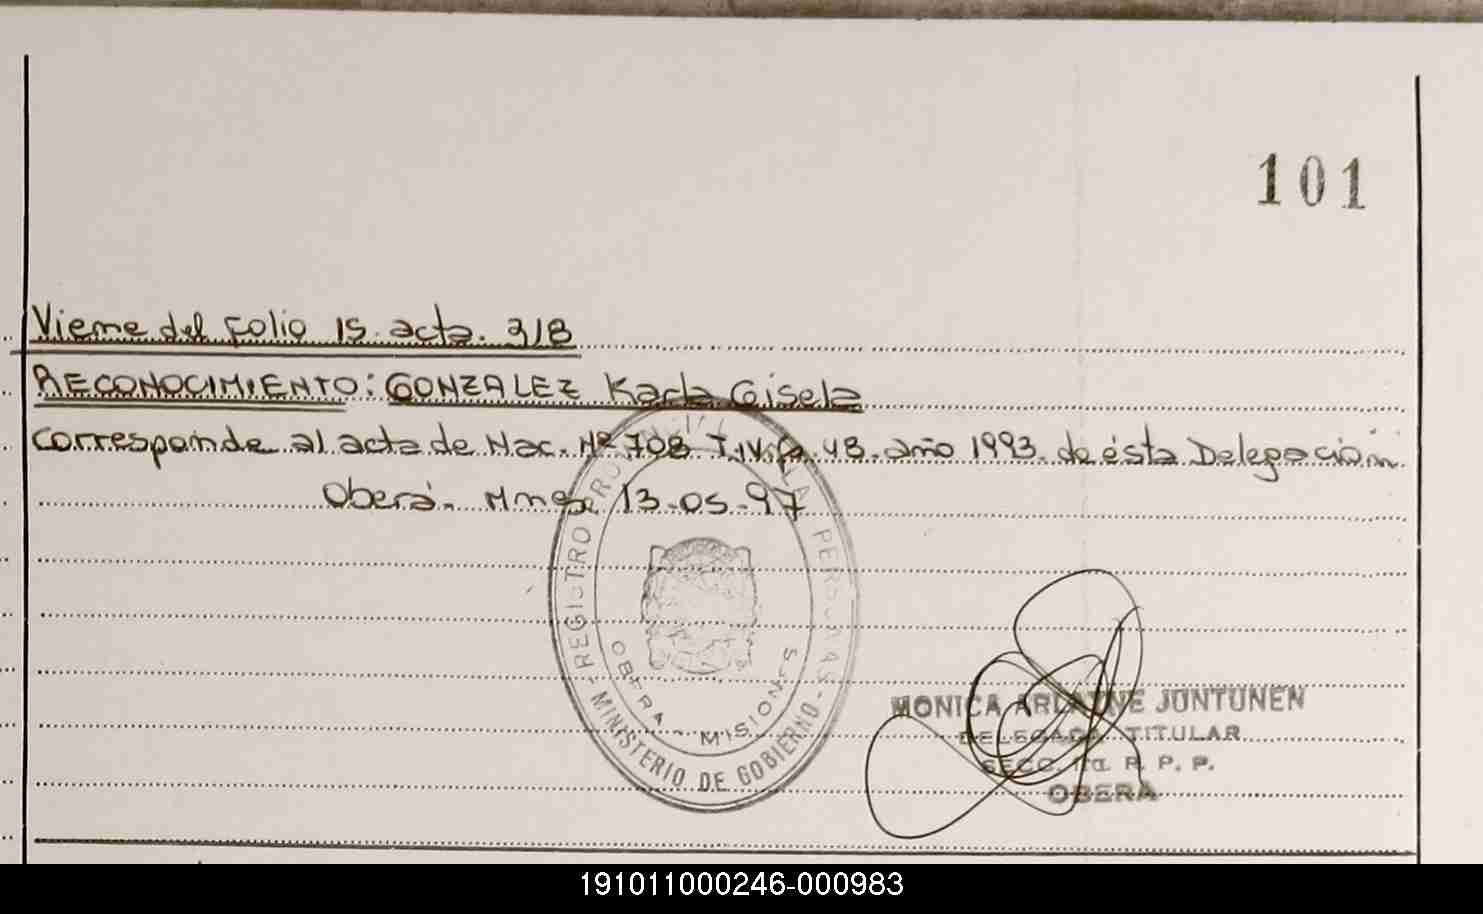 101
Viene del folio 15. acta. 318
RECONOCIMIENTO: GONZALEZ Karla Gisela
Corresponde al acta de Nac. Nº 708 T.IV.Fº 48. año 1993. de ésta Delegación
Oberá. Mnes 13-05-97
REGISTRO PERSONAS
MINISTERIO DE GOBIERNO
OBERA - MISIONES
MONICA ARLAINE JUNTUNEN
DELEGADA TITULAR
SECC. 1a. R. P. P.
OBERA
191011000246-000983